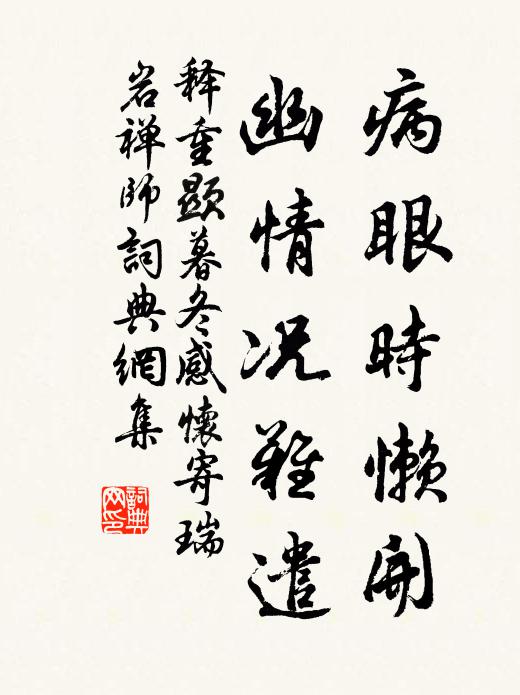 病眼時懶開
幽情况難遣
释重顯暮冬感懷寄瑞
岩禅師詞典網集
詞典
网印